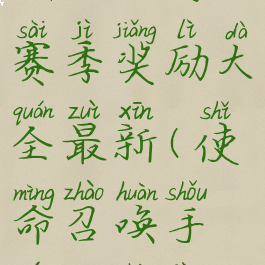 sài jì jiǎng lì dà
赛季奖励大
quán zuì xīn shǐ
全最新(使
mìng zhào huàn shǒu
命召唤手